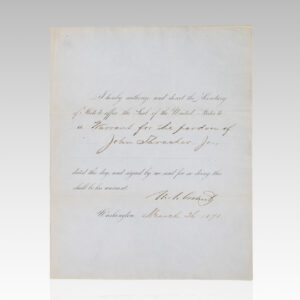 I hereby authorize and direct the Secretary
of State to affix the Seal of the United States to
a Warrant for the pardon of
John
dated this day, and signed by me and for so doing this
shall be his warrant.
U. S. Grant
Washington, March 1871